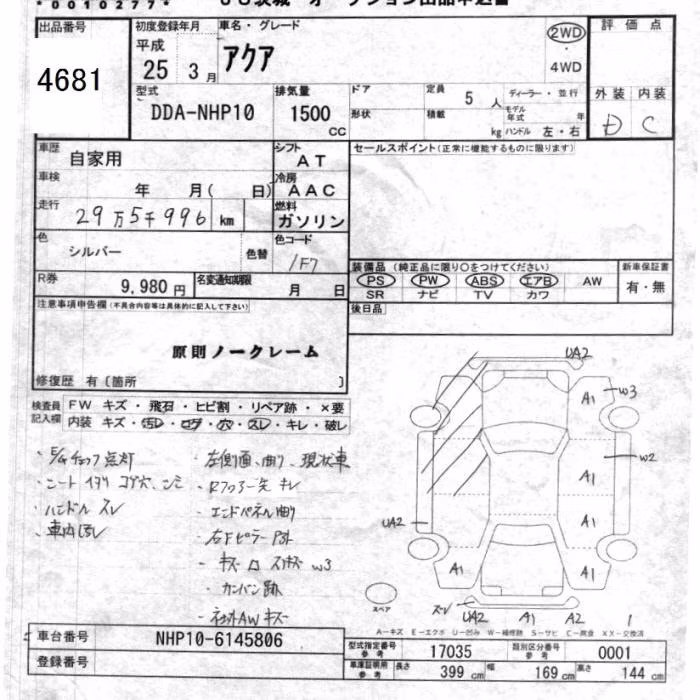 *00102777*
出品番号
4681
初度登録年月
平成
25 3 月
車名・グレード
アクア
2WD
4WD
評価点
外装 内装
D C
型式
DDA-NHP10
排気量
1500
CC
ドア
形状
定員 5 人
積載 kg
ディーラー・並行
モデル年式 年
ハンドル 左・右
車歴
自家用
シフト
AT
車検
年 月( 日)
冷房
AAC
走行
29万5千996 km
燃料
ガソリン
色
シルバー
色替
色コード
1F7
R券
9,980 円
名変通知期限
月 日
セールスポイント(正常に機能するものに限ります)
装備品(純正品に限り○をつけてください)
PS PW ABS エアB AW
SR ナビ TV カワ
新車保証書
有・無
後日品
注意事項申告欄(不具合内容等は具体的に記入して下さい)
原則ノークレーム
修復歴 有〔箇所 〕
検査員記入欄
FW キズ・飛石・ヒビ割・リペア跡・×要
内装 キズ・汚レ・コゲ・穴・スレ・キレ・破レ
・E/Gチェック点灯
・シート イタリ コゲ穴 シミ
・ハンドル スレ
・車内汚レ
・左側面、曲り、現状車
・Rフロアー先 キレ
・エンドパネル曲り
・右Fピラー
・キズ W3
・カンバン跡
・社外AW キズ
UA2
A1
W3
A1
W2
A1
UA2
A1
A1
スペア
スレ
UA2 A1 A2 1
A-キズ E-エクボ U-凹み W-補修跡 S-サビ C-腐食 XX-交換済
車台番号
NHP10-6145806
登録番号
型式指定番号 参考
17035
類別区分番号 参考
0001
車庫証明用 参考
長さ 399 cm 幅 169 cm 高さ 144 cm